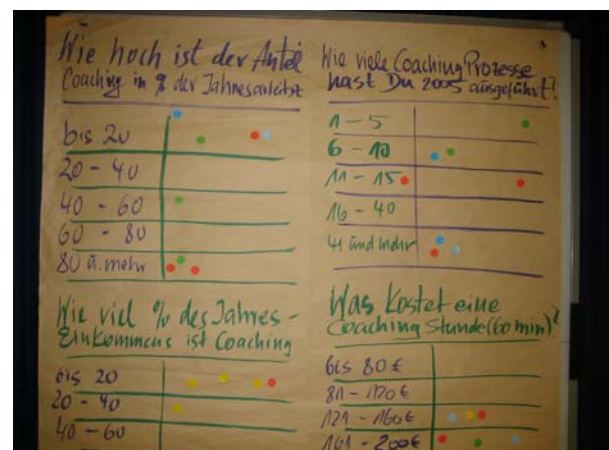 Wie hoch ist der Anteil
Coaching in % der Jahresarbeitszt
bis 20
20 - 40
40 - 60
60 - 80
80 u. mehr
Wie viele Coaching Prozesse
hast Du 2005 ausgeführt?
1 - 5
6 - 10
11 - 15
16 - 40
41 und mehr
Wie viel % des Jahres -
Einkommens ist Coaching
bis 20
20 - 40
40 - 60
Was kostet eine
Coaching Stunde (60 min)?
bis 80 €
81 - 120 €
121 - 160 €
161 - 200 €